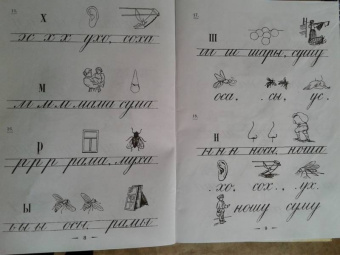 х
х х х ухо, соха
м
м м м мама сума
р
р р р рама, муха
ы
ы ы ы осы, рамы
ш
ш ш шары, сушу
оса, .сы, ус.
н
н н н носы, ноша
.хо, сох., .ух.
ношу суму